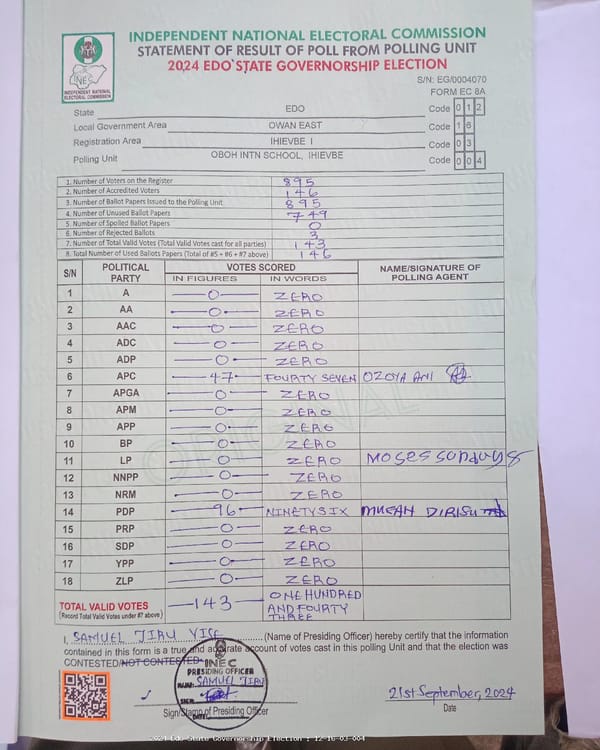 INDEPENDENT NATIONAL ELECTORAL COMMISSION
STATEMENT OF RESULT OF POLL FROM POLLING UNIT
2024 EDO STATE GOVERNORSHIP ELECTION
INEC
INDEPENDENT NATIONAL ELECTORAL COMMISSION
S/N: EG/0004070
FORM EC 8A
State EDO Code 0 1 2
Local Government Area OWAN EAST Code 1 6
Registration Area IHIEVBE I Code 0 3
Polling Unit OBOH INTN SCHOOL, IHIEVBE Code 0 0 4
1. Number of Voters on the Register 895
2. Number of Accredited Voters 146
3. Number of Ballot Papers Issued to the Polling Unit 895
4. Number of Unused Ballot Papers 749
5. Number of Spoiled Ballot Papers 0
6. Number of Rejected Ballots 3
7. Number of Total Valid Votes (Total Valid Votes cast for all parties) 143
8. Total Number of Used Ballots Papers (Total of #5 + #6 + #7 above) 146
S/N POLITICAL PARTY VOTES SCORED NAME/SIGNATURE OF POLLING AGENT
IN FIGURES IN WORDS
1 A 0 ZERO
2 AA 0 ZERO
3 AAC 0 ZERO
4 ADC 0 ZERO
5 ADP 0 ZERO
6 APC 47 FOURTY SEVEN OZOYA ANI
7 APGA 0 ZERO
8 APM 0 ZERO
9 APP 0 ZERO
10 BP 0 ZERO
11 LP 0 ZERO Moses Sunday
12 NNPP 0 ZERO
13 NRM 0 ZERO
14 PDP 96 NINETY SIX MUSAH DIRISU
15 PRP 0 ZERO
16 SDP 0 ZERO
17 YPP 0 ZERO
18 ZLP 0 ZERO
TOTAL VALID VOTES 143 ONE HUNDRED AND FOURTY THREE
(Record Total Valid Votes under #7 above)
ORIGINAL
I, SAMUEL JIRU VISE (Name of Presiding Officer) hereby certify that the information
contained in this form is a true and accurate account of votes cast in this polling Unit and that the election was
CONTESTED/NOT CONTESTED
INEC
PRESIDING OFFICER
NAME: SAMUEL JIRU
SIGN
DATE
Sign/Stamp of Presiding Officer
21st September, 2024
Date
2024 Edo State Governorship Election : 12-16-03-004